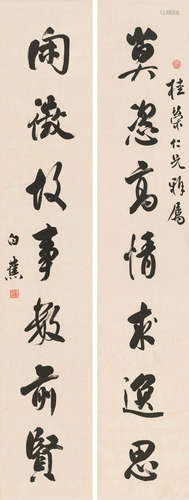 桂榮仁兄雅屬
莫恣高情求逸思
閑徵故事數前賢
白蕉